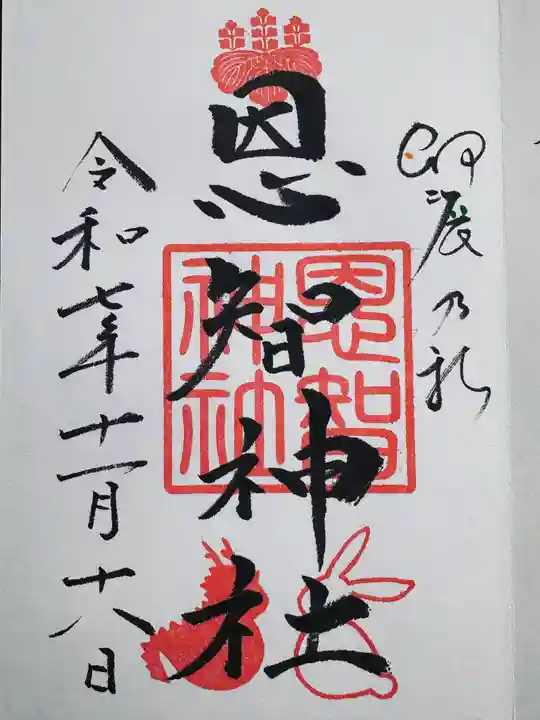 卯辰乃社
恩智神社
恩智
神社
令和七年十一月十八日